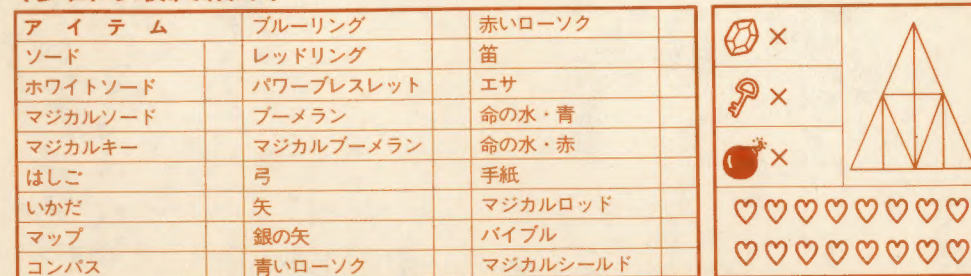 アイテム ブルーリング 赤いローソク
ソード レッドリング 笛
ホワイトソード パワーブレスレット エサ
マジカルソード ブーメラン 命の水・青
マジカルキー マジカルブーメラン 命の水・赤
はしご 弓 手紙
いかだ 矢 マジカルロッド
マップ 銀の矢 バイブル
コンパス 青いローソク マジカルシールド
×
×
×